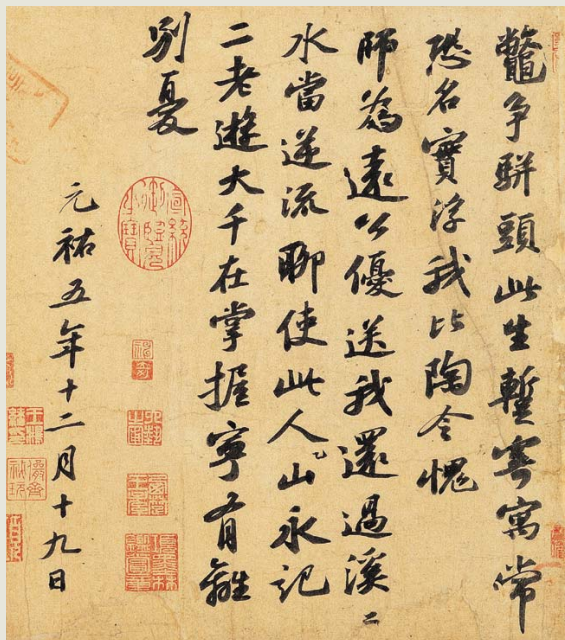 鼈争駢頭此生蹔寄寓常
恐名實浮我比陶令愧
師為遠公優送我還過溪〻
水當逆流聊使此人〻山永記
二老遊大千在掌握寧有離
別憂
元祐五年十二月十九日